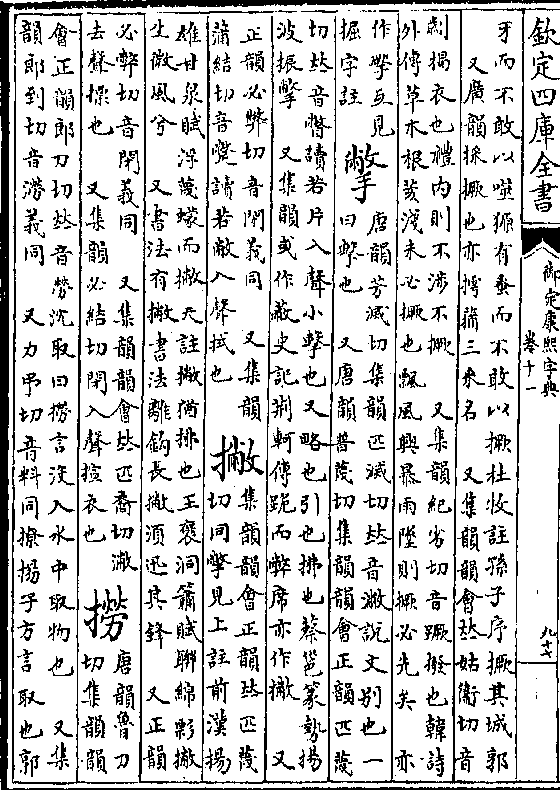 欽定四庫全書
御定康熙字典
卷十一
牙而不敢以噬猨有蚤而不敢以撅杜牧註孫子序撅其城郭
又廣韻採撅也亦摴蒱三采名 又集韻韻會𠀤姑衞切音
劌揭衣也禮內則不涉不撅 又集韻紀劣切音蹶撥也韓詩
外傳草木根荄淺未必撅也飄風興暴雨墜則撅必先矣 亦
作擘互見
掘字註
擎
唐韻芳滅切集韻匹滅切𠀤音瞥說文別也一
曰擊也 又唐韻普蔑切集韻韻會正韻匹蔑
切𠀤音暼讀若片入聲小擊也又略也引也拂也蔡邕篆勢揚
波振撆 又集韻或作蔽史記荆軻傳跪而蔽席亦作撇 又
正韻必弊切音閉義同 又集韻
蒲結切音蹩讀若敝入聲拭也
撇
集韻韻會正韻𠀤匹蔑
切同撆見上註前漢揚
雄甘泉賦浮蔑蠓而撇天註撇猶拂也王襃洞簫賦聯綿漂撇
生微風兮 又書法有撇書法離鈎長撇須迅其鋒 又正韻
必弊切音閉義同 又集韻韻會𠀤匹裔切潎
去聲擽也 又集韻必結切閉入聲揎衣也
撈
唐韻魯刀
切集韻韻
會正韻郎刀切𠀤音勞沈取曰撈言沒入水中取物也 又集
韻郎到切音澇義同 又力弔切音料同撩揚子方言取也郭